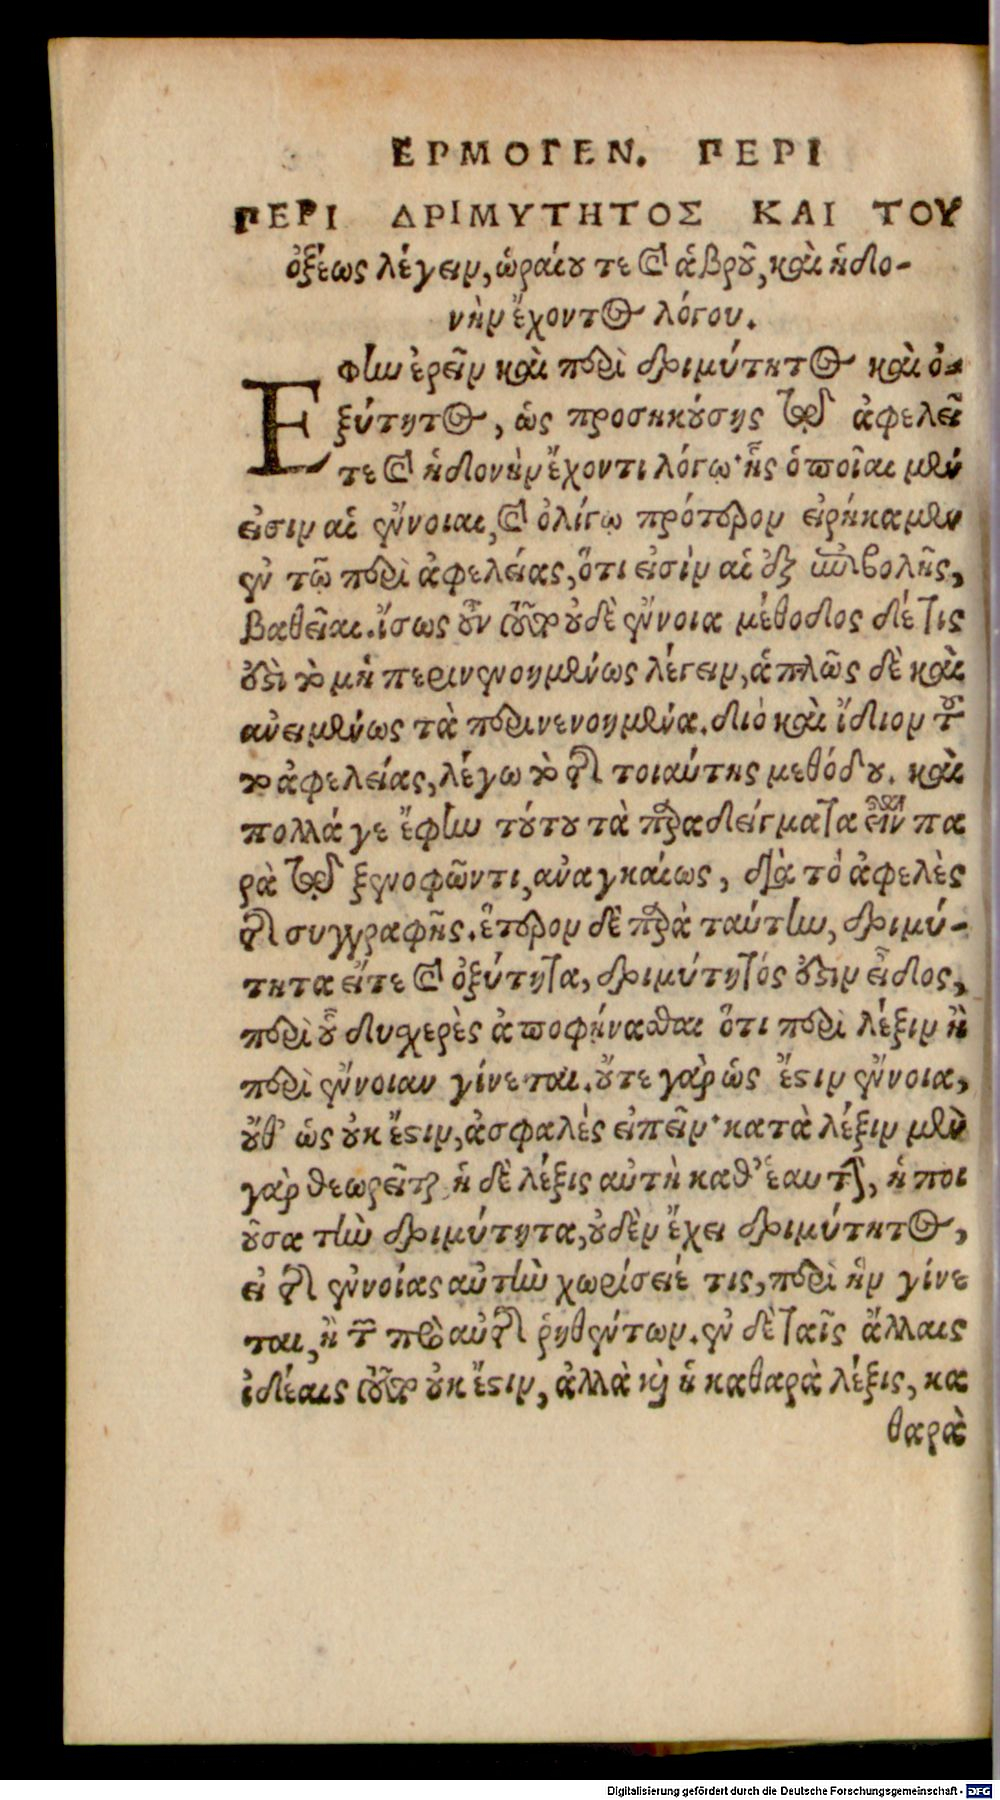 ΕΡΜΟΓΕΝ. ΠΕΡΙ
ΠΕΡΙ ΔΡΙΜΥΤΗΤΟΣ ΚΑΙ ΤΟΥ
ὀξέως λέγειν, ὡραίου τε καὶ ἁβροῦ, καὶ ἡδο-
νὴν ἔχοντος λόγου.
Εφην ἐρεῖν καὶ περὶ δριμύτητος καὶ ὀ-
ξύτητος, ὡς προσηκούσης τῷ ἀφελεῖ
τε καὶ ἡδονὴν ἔχοντι λόγῳ· ἧς ὁποῖαι μέν
εἰσιν αἱ ἔννοιαι, καὶ ὀλίγῳ πρότερον εἰρήκαμεν
ἐν τῷ περὶ ἀφελείας, ὅτι εἰσὶν αἱ ἐξ ἐπιβολῆς,
βαθεῖαι. ἴσως οὖν τοῦτο οὐδὲ ἔννοια μέθοδος δέ τις
ἐστὶ τὸ μὴ περινενοημένως λέγειν, ἁπλῶς δὲ καὶ
ἀνειμένως τὰ περινενοημένα. διὸ καὶ ἴδιον τοῦ
τὸ ἀφελείας, λέγω τὸ τῆς τοιαύτης μεθόδου. καὶ
πολλά γε ἔφην τούτου τὰ παραδείγματα εἶναι πα
ρὰ τῷ ξενοφῶντι, ἀναγκαίως, διὰ τὸ ἀφελὲς
τῆς συγγραφῆς. ἕτερον δὲ παρὰ ταύτην, δριμύ-
τητα εἴτε καὶ ὀξύτητα, δριμύτητός ἐστιν εἶδος,
περὶ οὗ δυσχερὲς ἀποφήνασθαι ὅτι περὶ λέξιν ἢ
περὶ ἔννοιαν γίνεται. οὔτε γὰρ ὡς ἔστιν ἔννοια,
οὔθ' ὡς οὐκ ἔστιν, ἀσφαλὲς εἰπεῖν· κατὰ λέξιν μὲν
γὰρ θεωρεῖται ἡ δὲ λέξις αὐτὴ καθ' ἑαυτὴν, ἡ ποι
οῦσα τὴν δριμύτητα, οὐδὲν ἔχει δριμύτητος,
εἰ τῆς ἐννοίας αὐτὴν χωρίσειέ τις, περὶ ἣν γίνε
ται, ἢ τῶν πρὸ αὐτῆς ῥηθέντων. ἐν δὲ ταῖς ἄλλαις
ἰδέαις τοῦτο οὐκ ἔστιν, ἀλλὰ καὶ ἡ καθαρὰ λέξις, κα
θαρὰ
Digitalisierung gefördert durch die Deutsche Forschungsgemeinschaft - DFG